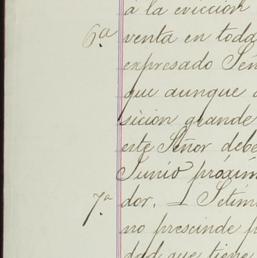 á la eviccion
6ª. venta en toda
expresado Señ
que aunque
sicion grande
este Señor debe
Junio próxim
7ª. dor. — Setim
no prescinde p
dad que tiene